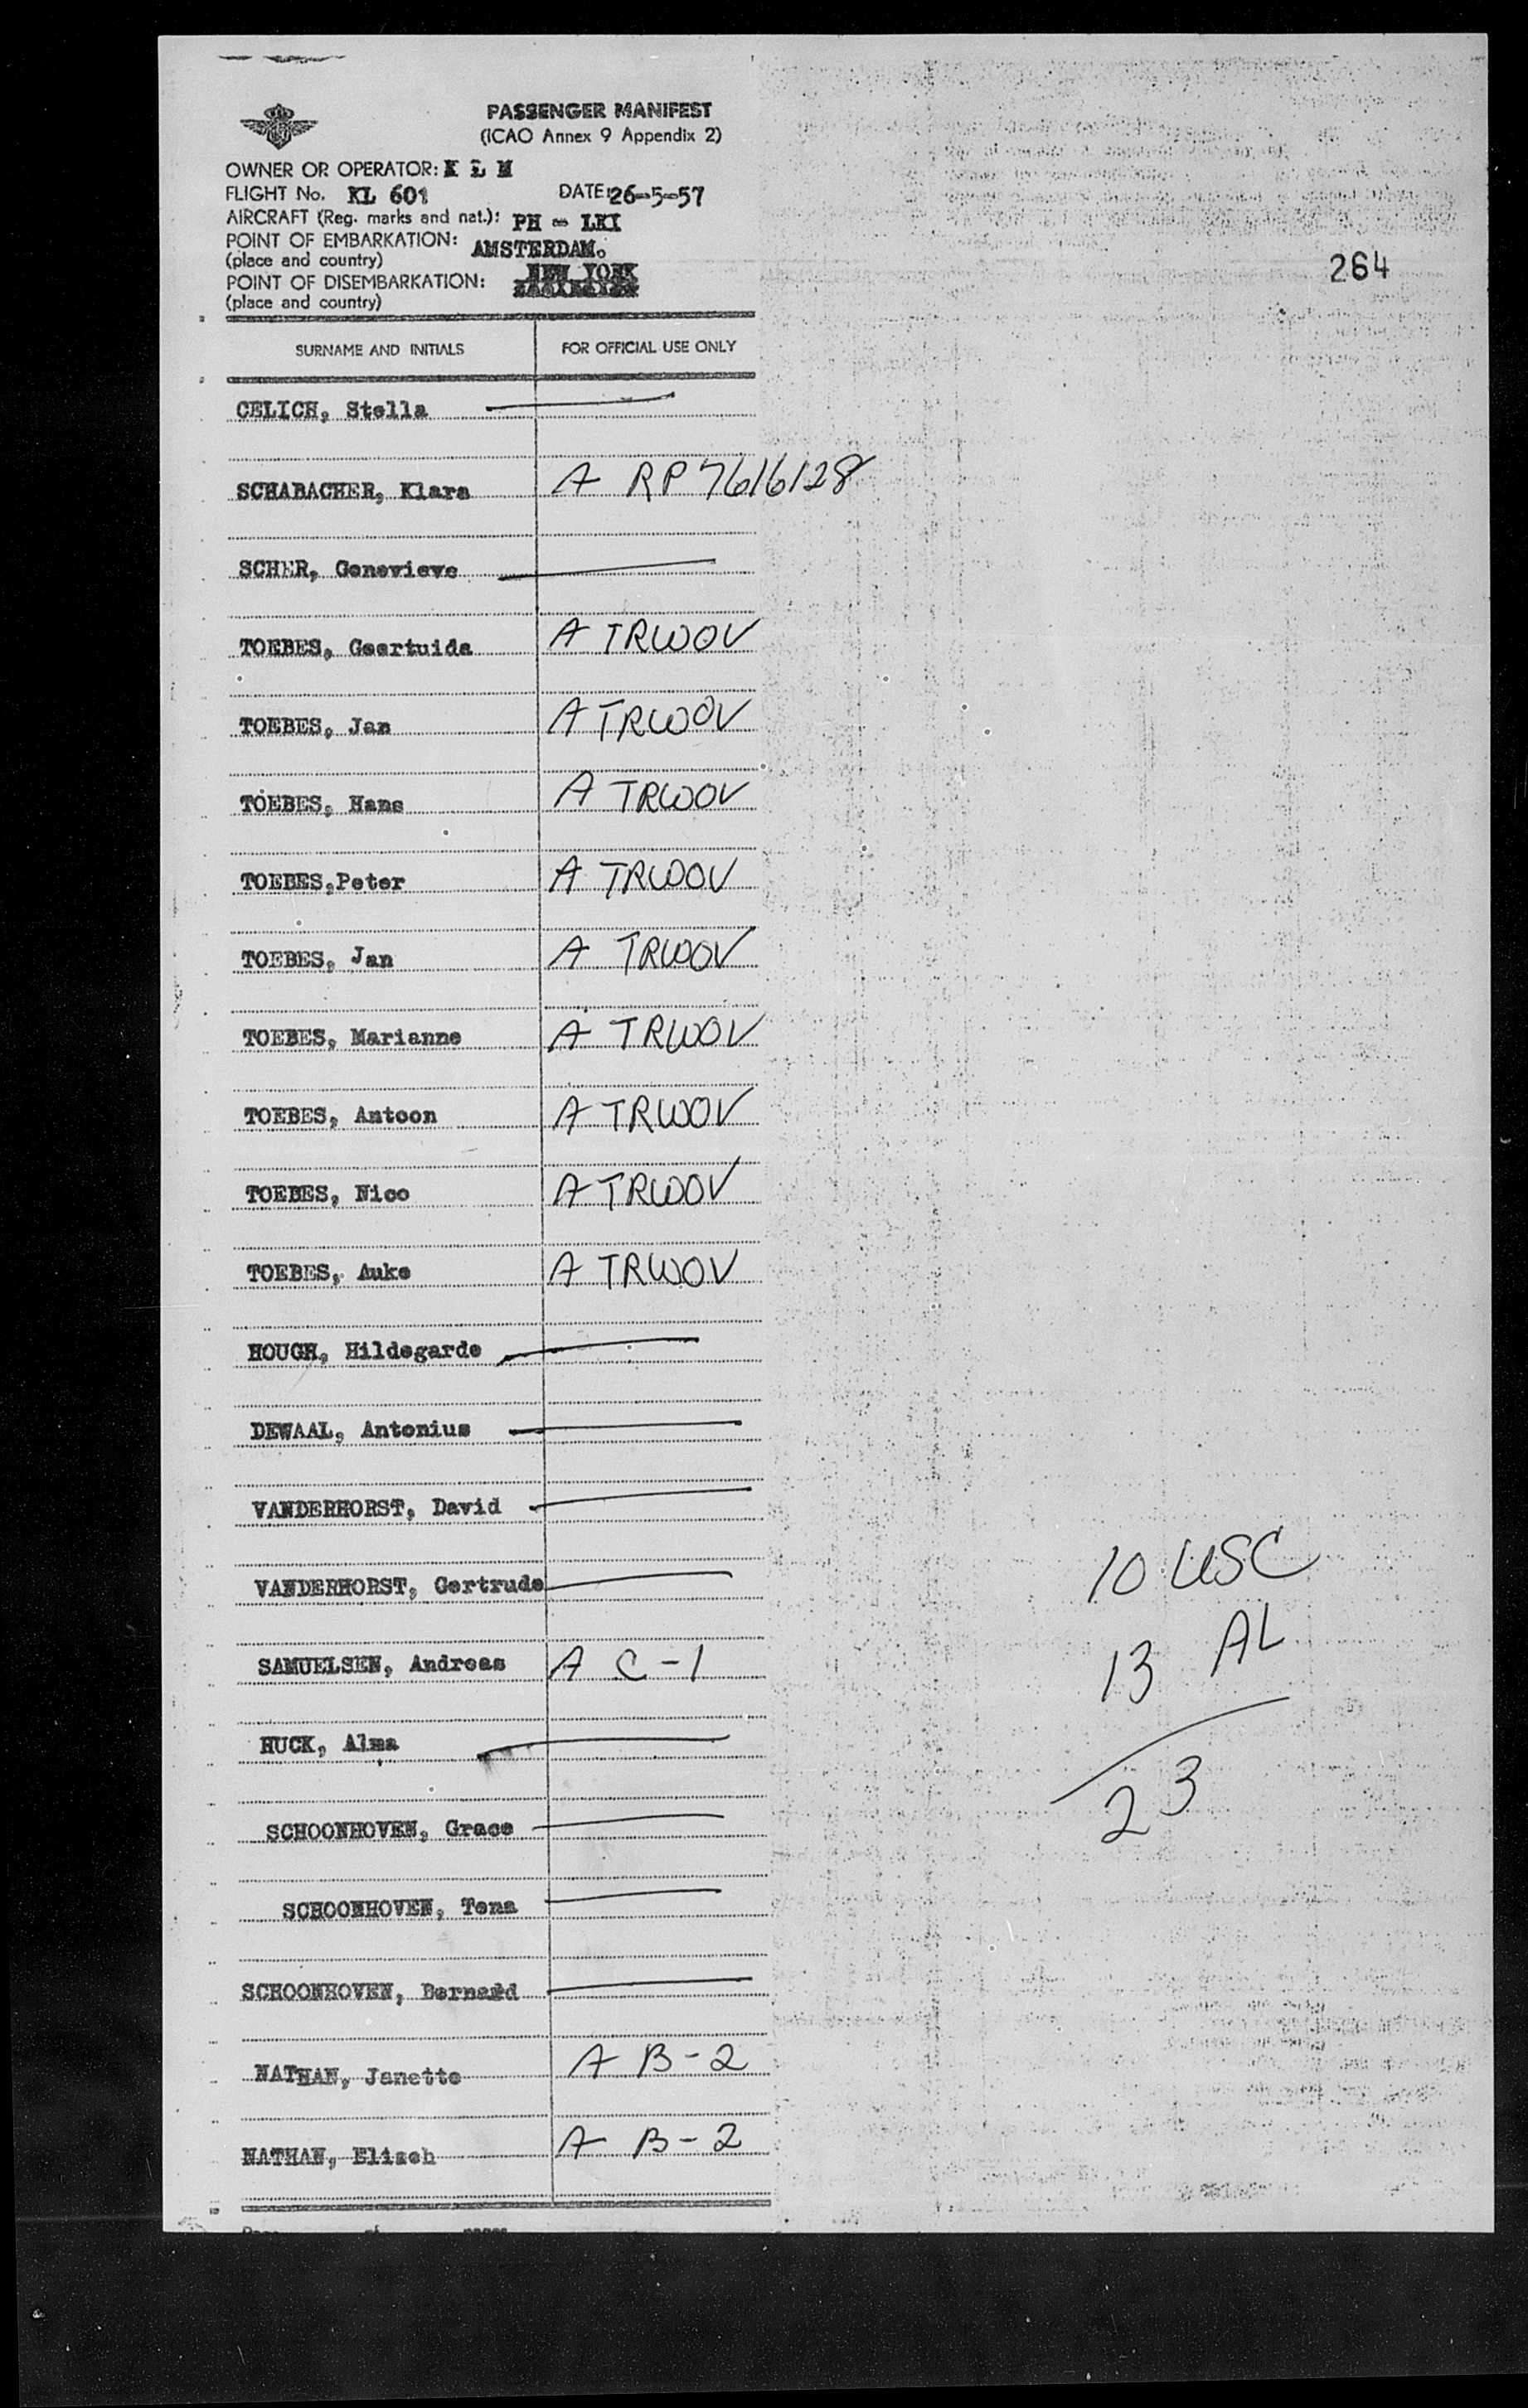 PASSENGER MANIFEST
(ICAO Annex 9 Appendix 2)
OWNER OR OPERATOR: K L M
FLIGHT No. KL 601 DATE: 26-5-57
AIRCRAFT (Reg. marks and nat.): PH - LKI
POINT OF EMBARKATION: AMSTERDAM.
(place and country)
POINT OF DISEMBARKATION: NEW YORK
(place and country)
264
SURNAME AND INITIALS FOR OFFICIAL USE ONLY
CELICH, Stella
SCHABACHER, Klara A RP7616128
SCHER, Genevieve
TOEBES, Geertuida A TRWOV
TOEBES, Jan A TRWOV
TOEBES, Hans A TRWOV
TOEBES,Peter A TRWOV
TOEBES, Jan A TRWOV
TOEBES, Marianne A TRWOV
TOEBES, Antoon A TRWOV
TOEBES, Nico A TRWOV
TOEBES, Auke A TRWOV
HOUGH, Hildegarde
DEWAAL, Antonius
VANDERHORST, David
VANDERHORST, Gertrude
SAMUELSEN, Andreas A C-1
HUCK, Alma
SCHOONHOVEN, Grace
SCHOONHOVEN, Tena
SCHOONHOVEN, Bernard
NATHAN, Janette A B-2
NATHAN, Elizeh A B-2
10 USC
13 AL
23